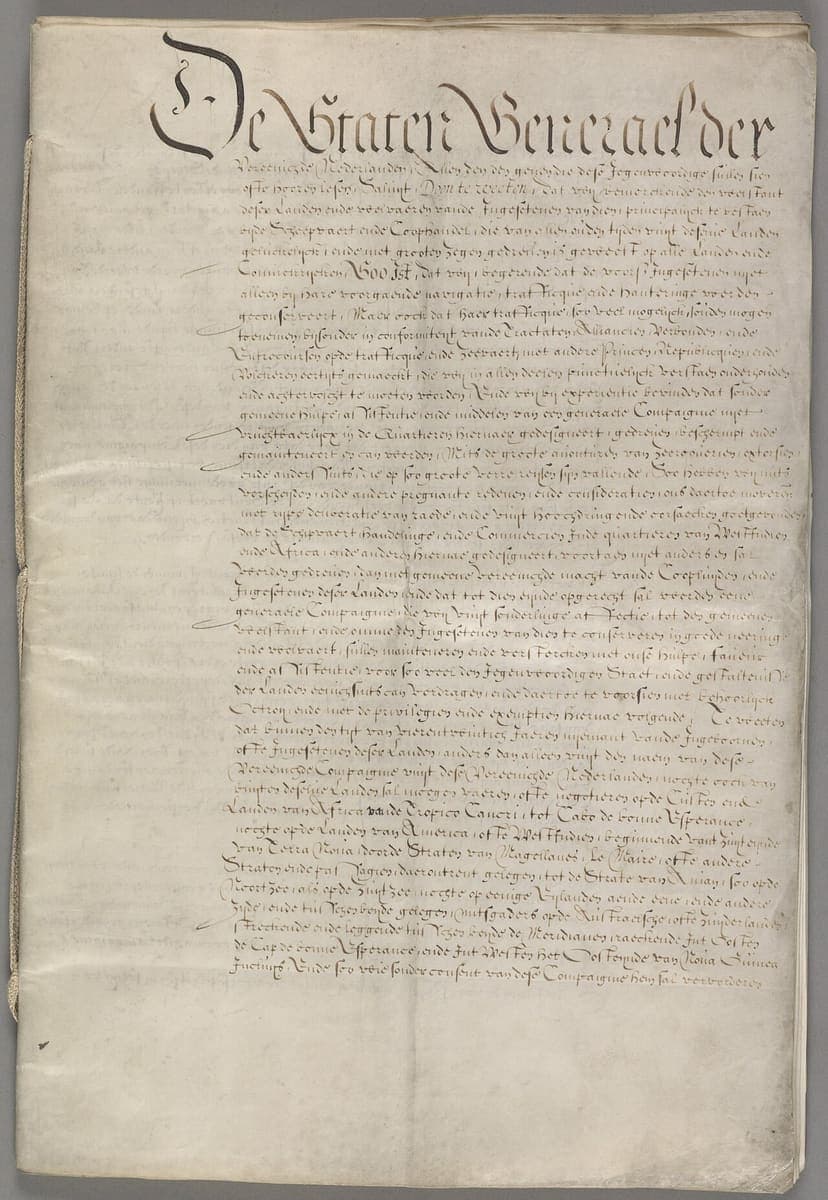 De Staten Generael der
Vereenichde Nederlanden, Allen den genen die dese Jegenwoordige sullen sien
ofte hooren lesen, Saluijt. Doen te weeten, dat wij bemerckende den welstant
deser Landen ende welvaeren vande Ingesetenen van dien principalijck te bestaen
bijde Scheepvaert ende Coophandel, die van allen ouden tijden vuijt deselve Landen
geluckelijck, ende met grooten zegen gedreven is geweest op alle Landen ende
Coninckrijcken, Soo Ist, dat wij begerende dat de voors. Ingesetenen niet
alleen bij hare voorgaende navigatie, trafficque, ende hanteringe werden
geconserveert, Maer ooch dat haer traffique, soo veel mogelijck souden mogen
toenemen, bijsonder in conformiteyt vande Tractaten, Alliancien, Verbonden, ende
Entrecoursen opde traffique, ende zeevaert, met andere Princen, Republicquen, ende
Volckeren eertijts gemaeckt, die wij in allen deelen punctuelijck verstaen onderhouden
ende achtervolcht te moeten werden, Ende wij bij experientie bevinden dat sonder
gemeene hulpe, assistentie, ende middelen van een generaele Compaignie niet
vruchtbaerlijcx in de Quartieren hiernaer gedesigneert, gedreven, beschermpt ende
gemainteneert en can werden, Mits de groote avontueren van zeerooverien, extorsien
ende anders sints, die op soo groote verre reijsen sijn vallende, Soo hebben wij uuts
verscheijden ende andere pregnante redenen, ende consideratien ons daertoe moverende
met rijpe deliberatie van raede, ende vuijt hoochdringende oorsaecken goetgevonden
dat de Schipvaert, Handelinge, ende Commercien Inde quartieren van WestIndien
ende Africa, ende anderen hiernae gedesigneert, voortaen niet anders en sal
werden gedreven, dan met gemeene vereenichde macht vande Coopluijden, ende
Ingesetenen deser Landen, ende dat tot dien eijnde opgerecht sal werden eene
generaele Compaignie, die wij vuijt sonderlinge affectie, tot den gemeenen
welstant, ende omme den Ingesetenen van dien te conserveren in goede neeringe
ende welvaert, sullen mainteneren ende verstercken met onse hulpe, faveur
ende assistentie, voor soo veel den Jegenwoordigen Staet, ende gestaltenisse
der Landen eenichsints can verdragen, ende daertoe te voorsien met behoorlijck
Octroij, ende met de privilegien ende exemptien hiernae volgende, Te weeten
dat binnen den tijt van vierentwintich Jaeren niemant vande Ingeboornen,
ofte Ingesetenen deser Landen, anders dan alleen vuijt den naem van dese
Vereenichde Compaignie vuijt dese Vereenichde Nederlanden, nochte ooch van
buijten deselve Landen sal moegen vaeren, ofte negotieren opde Custen ende
Landen van Africa vande Tropico Cancri, tot Cabo de bonne Esperance,
nochte opde Landen van America, ofte WestIndien, beginnende vant zuijteynde
van Terra Nova, doorde Straten van Magellanes, Le Maire, ofte andere
Straten ende passagien, daeromtrent gelegen, tot de Strate van Anian, soo opde
Noort zee, als opde zuijt zee, nochte op eenige Eijlanden aende eene, ende andere
zijde, ende tusschen beijde gelegen, mitsgaders opde Australesche, ofte zuijderlanden
streckende ende leggende tusschen beijde de Meridianen, raeckende Int Oosten
de Cap de bonne Esperance, ende Int Westen het Oosteynde van Nova Guinea
Incluijs, Ende soo wie sonder consent van dese Compaignie hem sal vervorderen